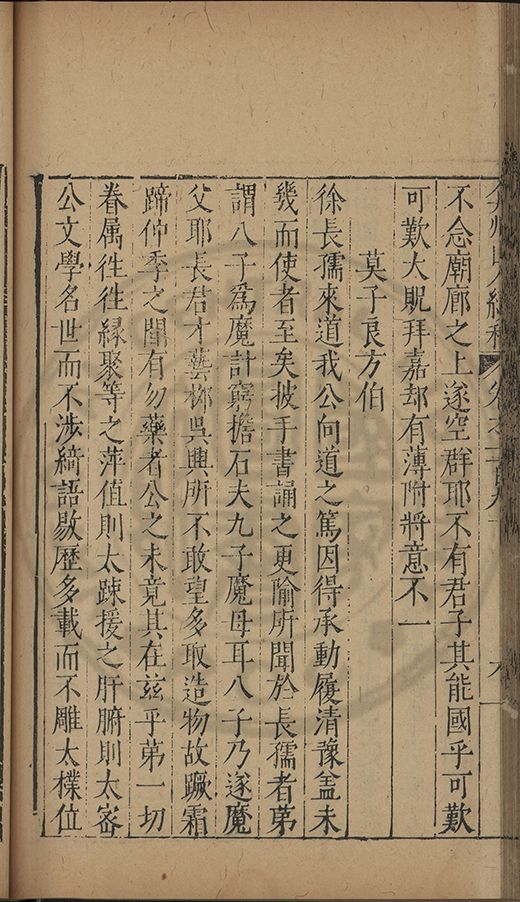 不念廟廊之上遂空群耶不有君子其能國乎可歎
可歎大貺拜嘉却有薄附將意不一
莫子良方伯
徐長孺來道我公向道之篤因得承動履清豫盖未
幾而使者至矣披手書誦之更隃所聞於長孺者第
謂八子為魔計窮擔石夫九子魔母耳八子乃遂魔
父耶長君才藝郁吳興所不敢望多取造物故蹶霜
蹄仲季之間有勿藥者公之未竟其在兹乎第一切
眷属徃徃緣聚等之萍值則太踈援之肝腑則太宻
公文學名世而不涉綺語敭歷多載而不雕太樸位